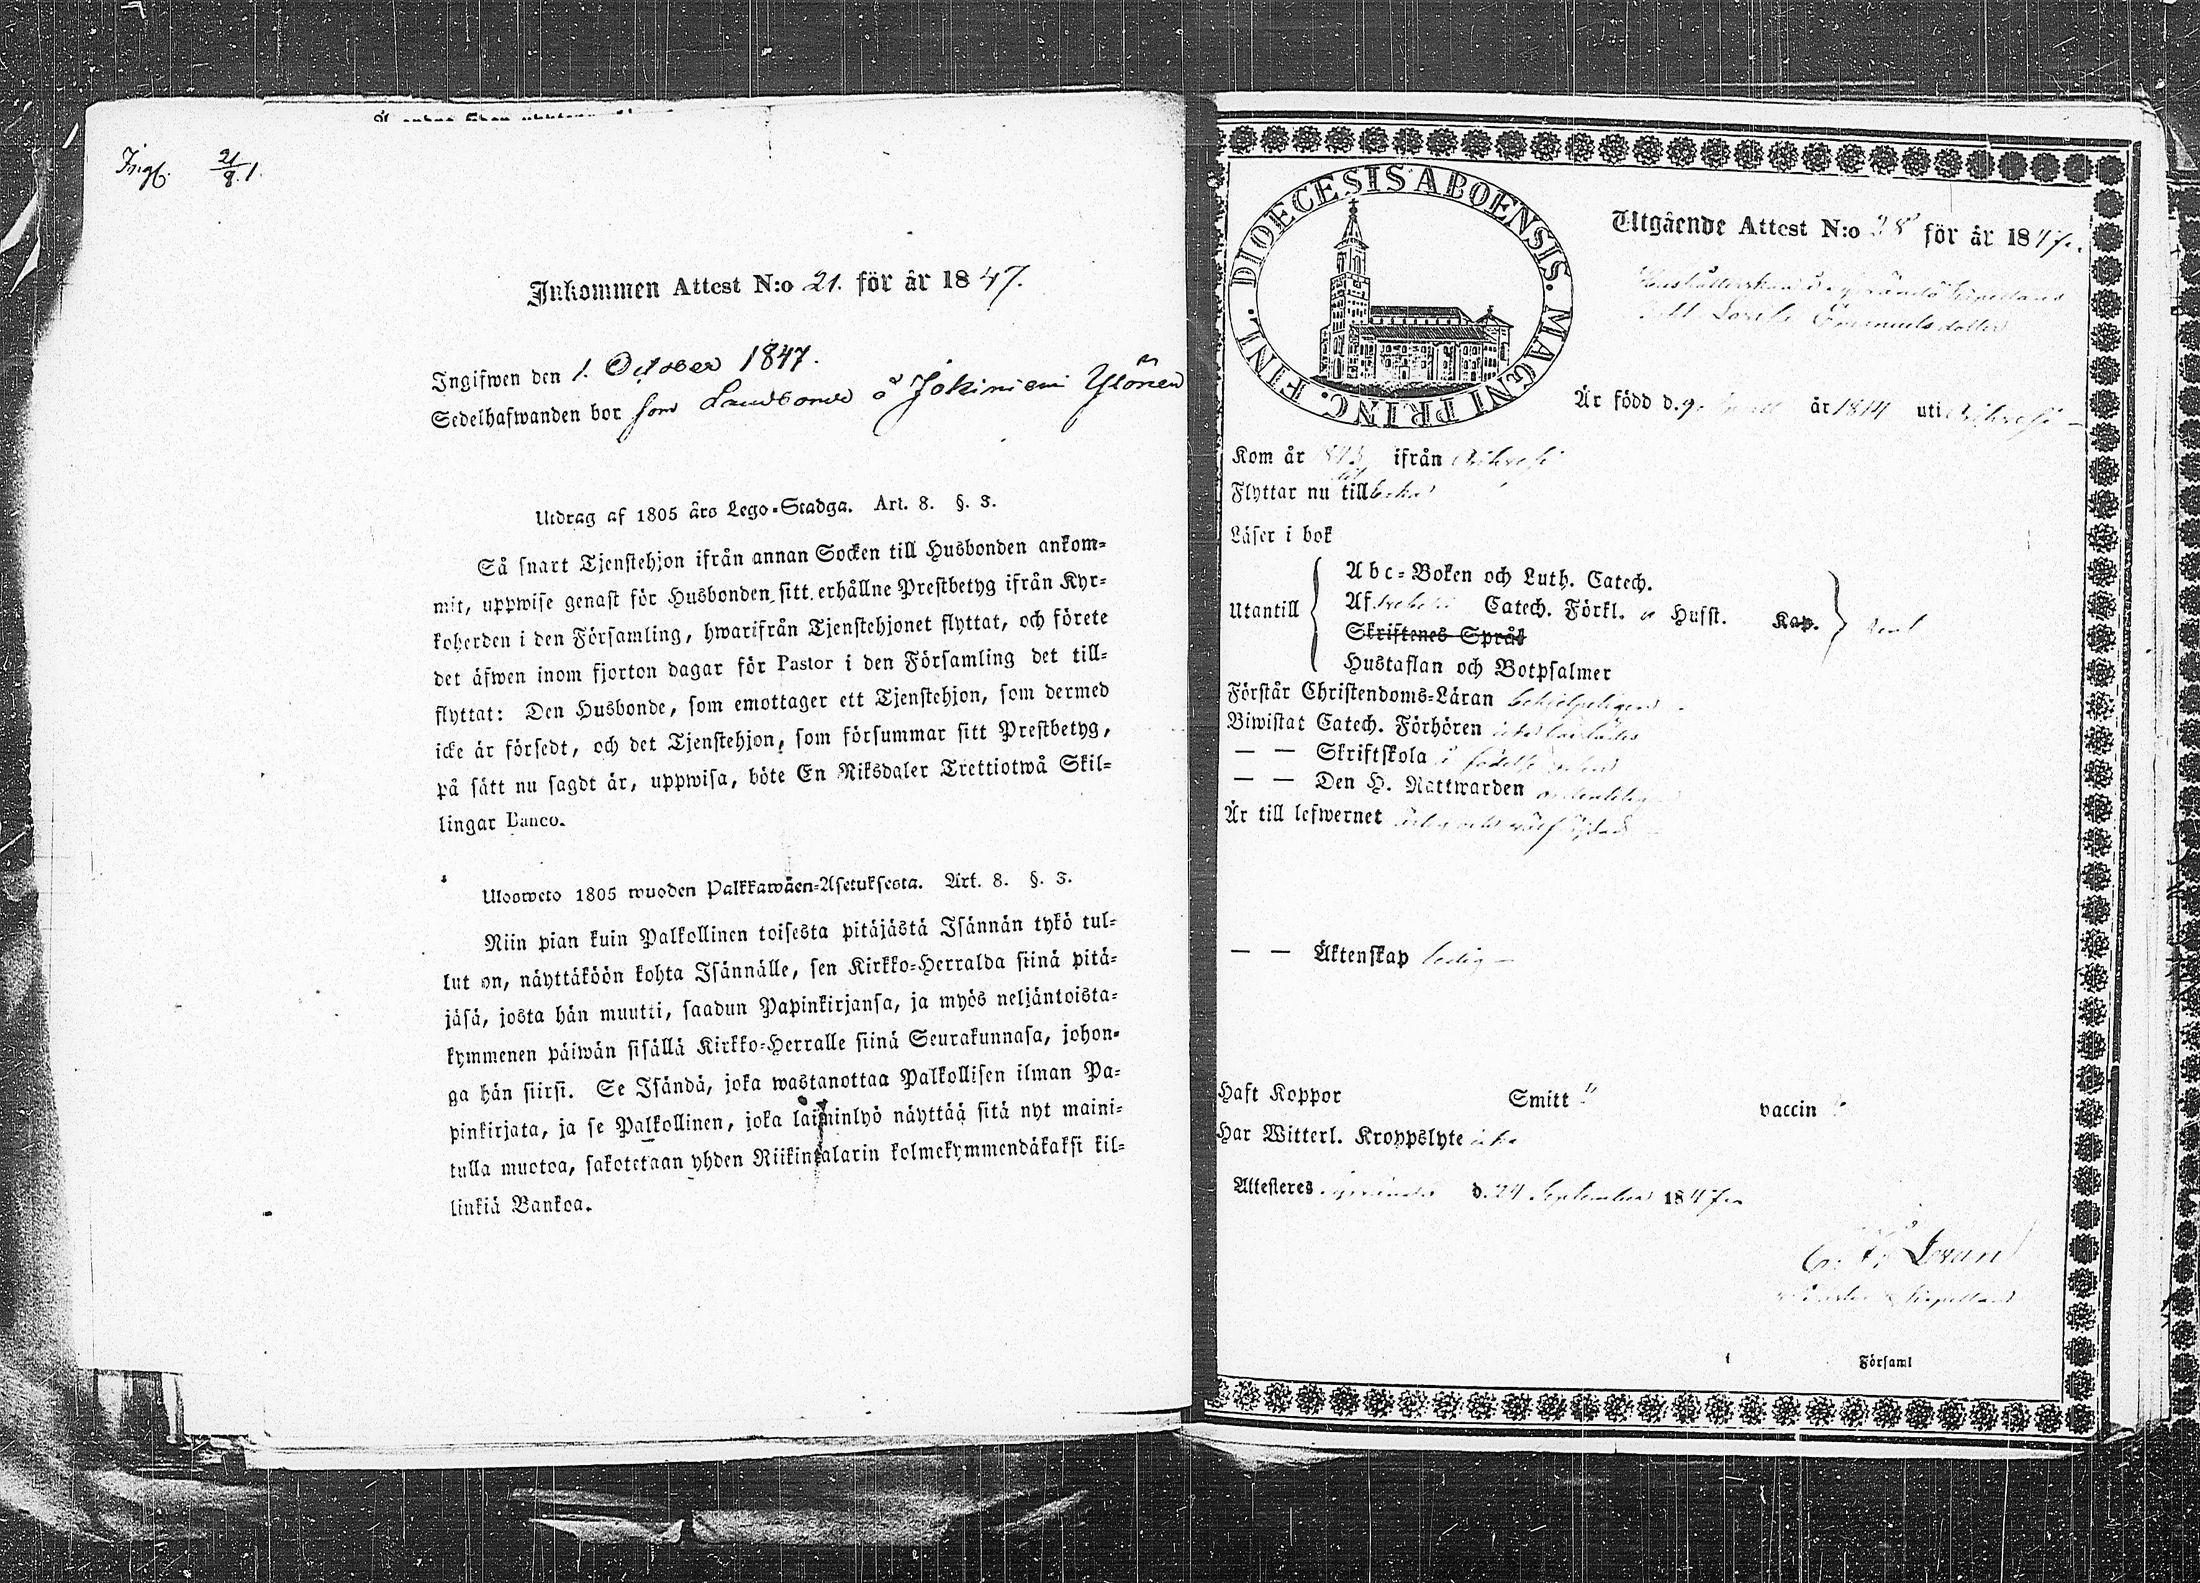 Ingf. 21/8.1.
Inkommen Attest N:o 21. för år 1847.
Ingifwen den 1. October 1847.
Sedelhafwanden bor som Landbonde å Jokiniemi Ylönen
Utdrag af 1805 års Lego-Stadga. Art. 8. §. 3.
Så snart Tjenstehjon ifrån annan Socken till Husbonden ankom-
mit, uppwise genast för Husbonden sitt erhållne Prestbetyg ifrån Kyr-
koherden i den Församling, hwarifrån Tjenstehjonet flyttat, och förete
det äfwen inom fjorton dagar för Pastor i den Församling det till-
flyttat: Den Husbonde, som emottager ett Tjenstehjon, som dermed
icke är försedt, och det Tjenstehjon, som försummar sitt Prestbetyg,
på sätt nu sagdt är, uppwisa, böte En Riksdaler Trettiotwå Skil-
lingar Banco.
Ulosweto 1805 wuoden Palkkawäen-Asetuksesta. Art. 8. §. 3.
Niin pian kuin Palkollinen toisesta pitäjästä Isännän tykö tul-
lut on, näyttäköön kohta Isännälle, sen Kirkko-Herralda siinä pitä-
jäsä, josta hän muutti, saadun Papinkirjansa, ja myös neljäntoista-
kymmenen päiwän sisällä Kirkko-Herralle siinä Seurakunnasa, johon-
ga hän siirsi. Se Isändä, joka wastanottaa Palkollisen ilman Pa-
pinkirjata, ja se Palkollinen, joka laiminlyö näyttää sitä nyt maini-
tulla muotoa, sakotetaan yhden Riikintalarin kolmekymmendäkaksi kil-
linkiä Bankoa.
DIOECESIS ABOENSIS. MAGNI PRINC. FINL.
Utgående Attest N:o 28 för år 1847.
Emanuelsdotter
Är född d. 9. år 1814 uti
Kom år ifrån
Flyttar nu till
Läser i bok
Utantill
Abc-Boken och Luth. Catech.
Af Catech. Förkl. o Husst. Kap.
Skriftenes Språk
Hustaflan och Botpsalmer
Förstår Christendoms-Läran behjelpeligen
Biwistat Catech. Förhören
— — Skriftskola i födelse
— — Den H. Nattwarden ordentligen
Är till lefwernet
— — Äktenskap ledig
Haft Koppor Smitt vaccin
Har Witterl. Kroppslyte icke
Attesteres d. 24 September 1847
Församl